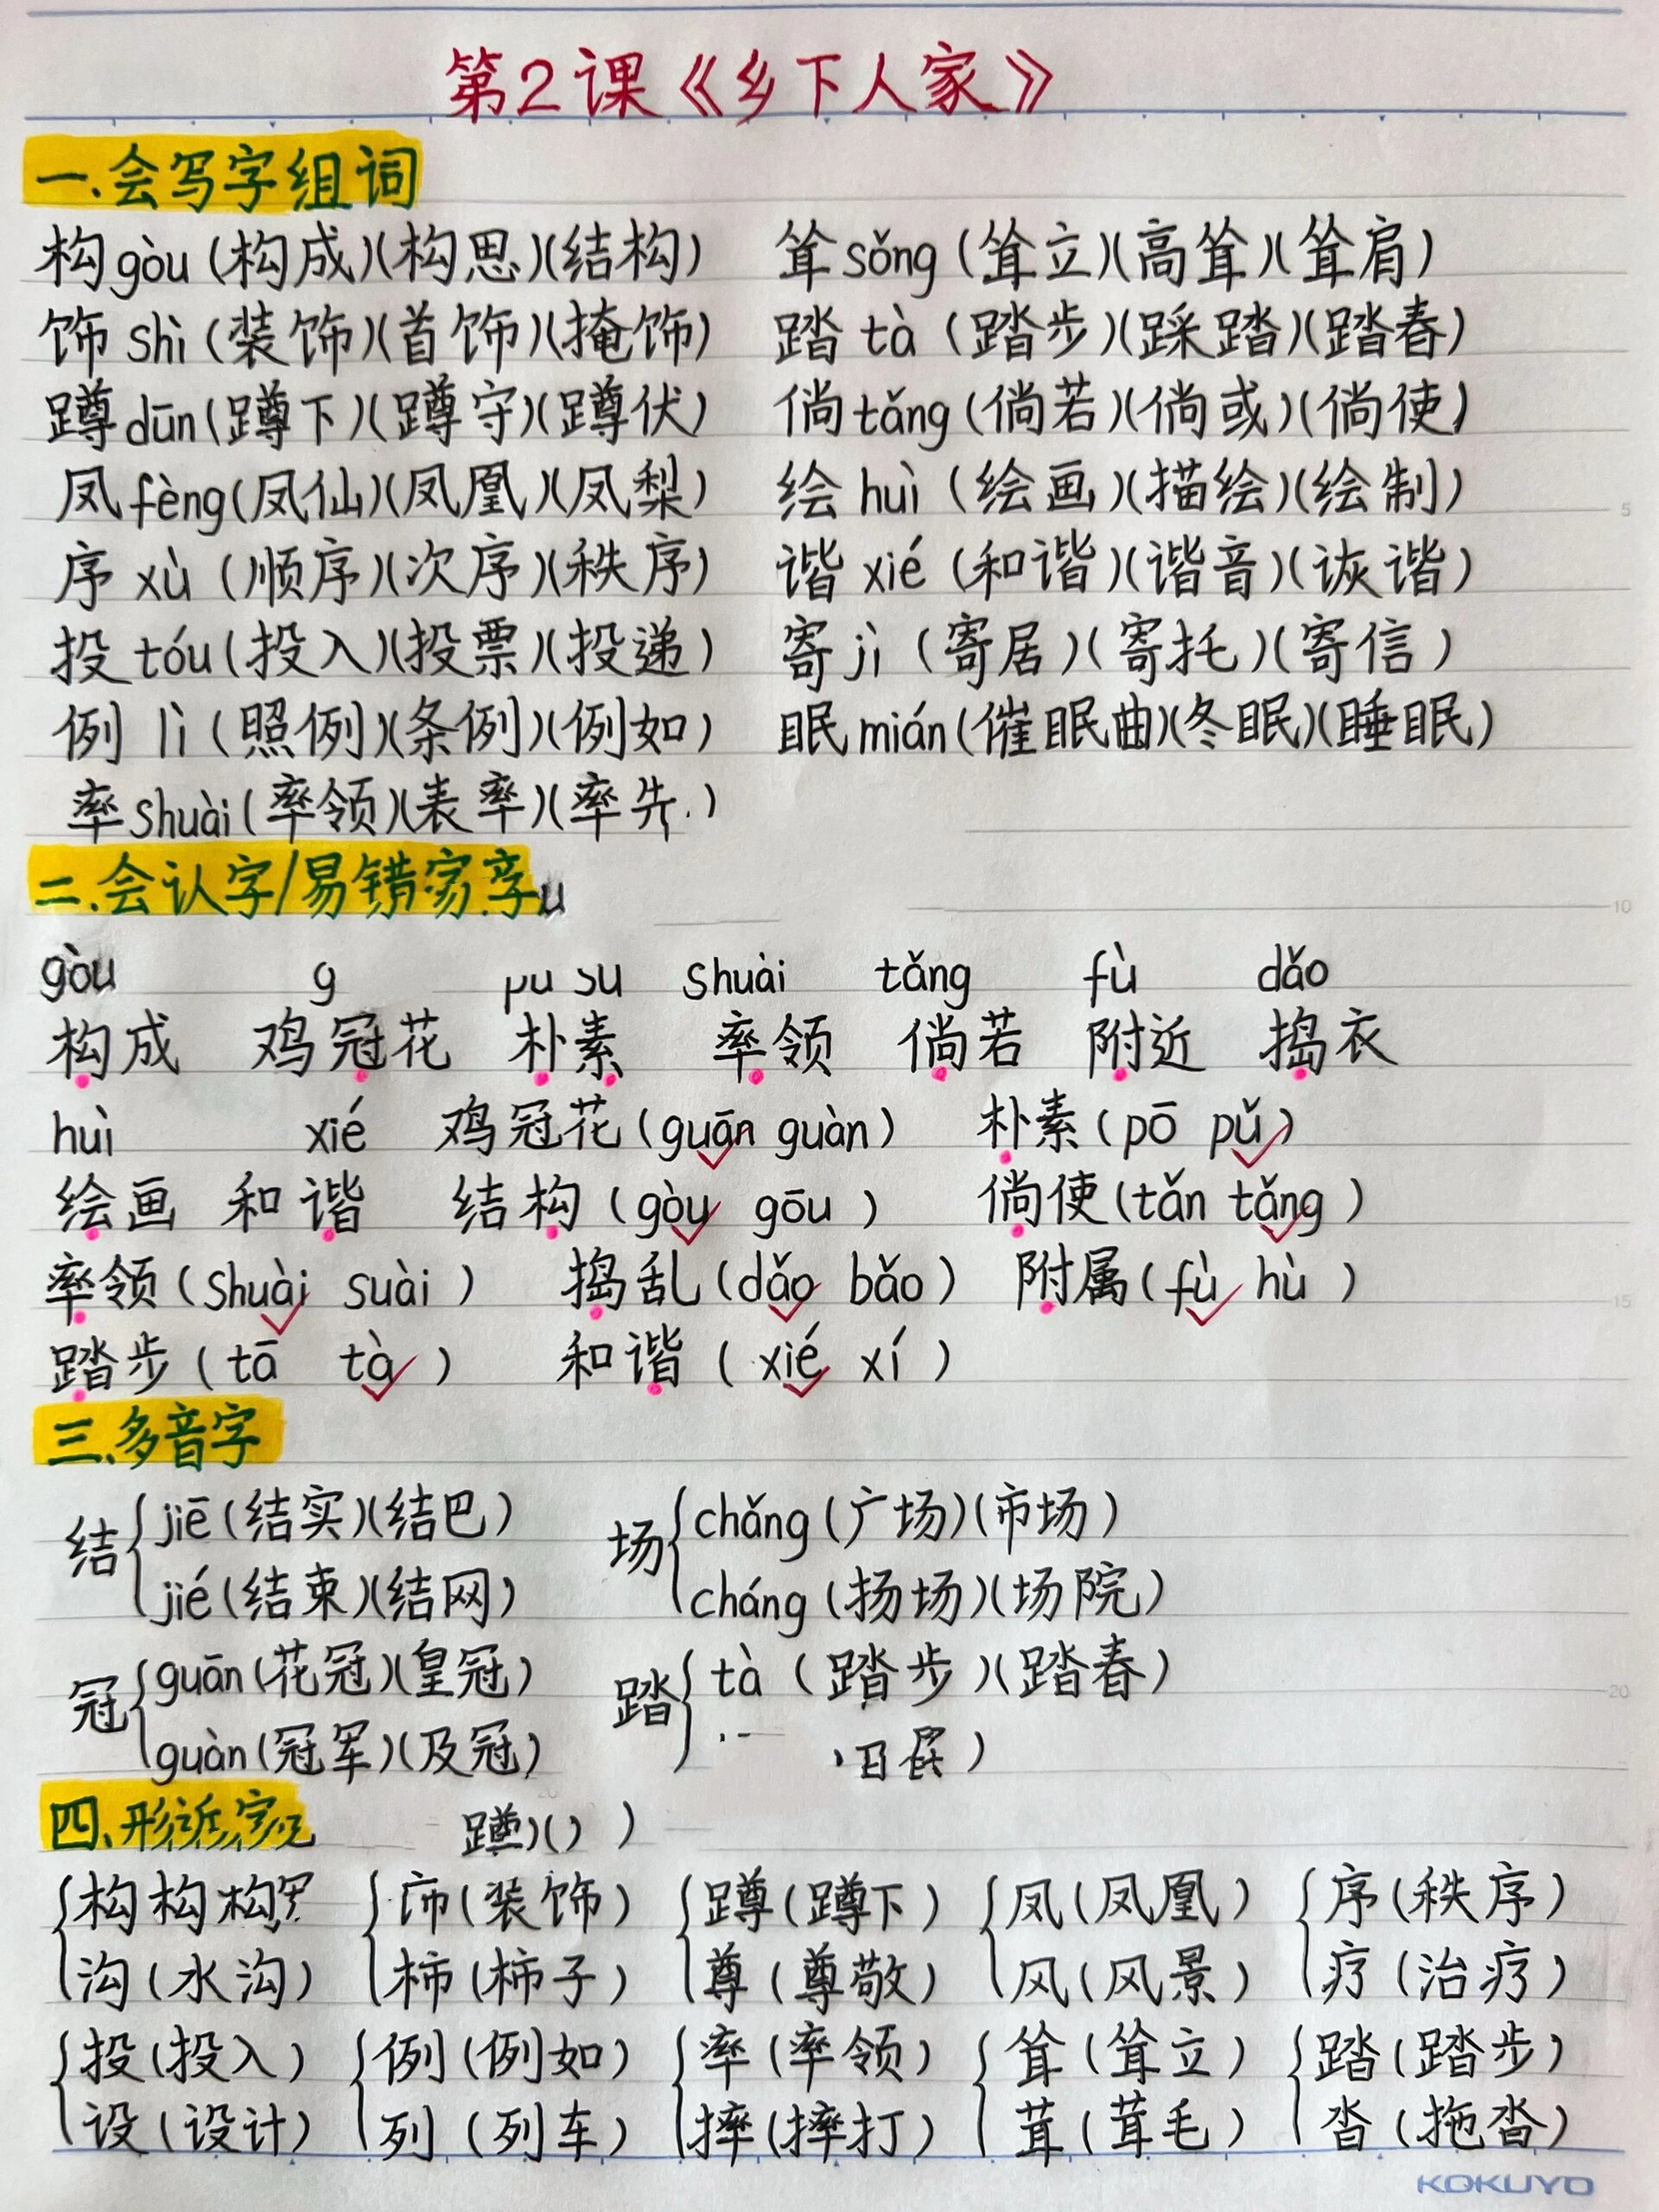 第2课《乡下人家》
一.会写字组词
构gòu(构成)(构思)(结构) 耸sǒng(耸立)(高耸)(耸肩)
饰shì(装饰)(首饰)(掩饰) 踏tà(踏步)(踩踏)(踏春)
蹲dūn(蹲下)(蹲守)(蹲伏) 倘tǎng(倘若)(倘或)(倘使)
凤fèng(凤仙)(凤凰)(凤梨) 绘huì(绘画)(描绘)(绘制)
序xù(顺序)(次序)(秩序) 谐xié(和谐)(谐音)(诙谐)
投tóu(投入)(投票)(投递) 寄jì(寄居)(寄托)(寄信)
例lì(照例)(条例)(例如) 眠mián(催眠曲)(冬眠)(睡眠)
率shuài(率领)(表率)(率先)
二.会认字/易错
gòu g pu su shuài tǎng fù dǎo
构成 鸡冠花 朴素 率领 倘若 附近 捣衣
huì xié 鸡冠花(guān guàn) 朴素(pō pǔ)
绘画 和谐 结构(gòu gōu) 倘使(tǎn tǎng)
率领(shuài suài) 捣乱(dǎo bǎo) 附属(fù hù)
踏步(tā tà) 和谐(xié xí)
三.多音字
结 jiē(结实)(结巴) 场 chǎng(广场)(市场)
jié(结束)(结网) cháng(扬场)(场院)
冠 guān(花冠)(皇冠) 踏 tà(踏步)(踏春)
guàn(冠军)(及冠)
四.形近字
蹲)())
构构构 饰(装饰) 蹲(蹲下) 凤(凤凰) 序(秩序)
沟(水沟) 柿(柿子) 尊(尊敬) 风(风景) 疗(治疗)
投(投入) 例(例如) 率(率领) 耸(耸立) 踏(踏步)
设(设计) 列(列车) 摔(摔打) 茸(茸毛) 沓(拖沓)
5
10
15
20
KOKUYO